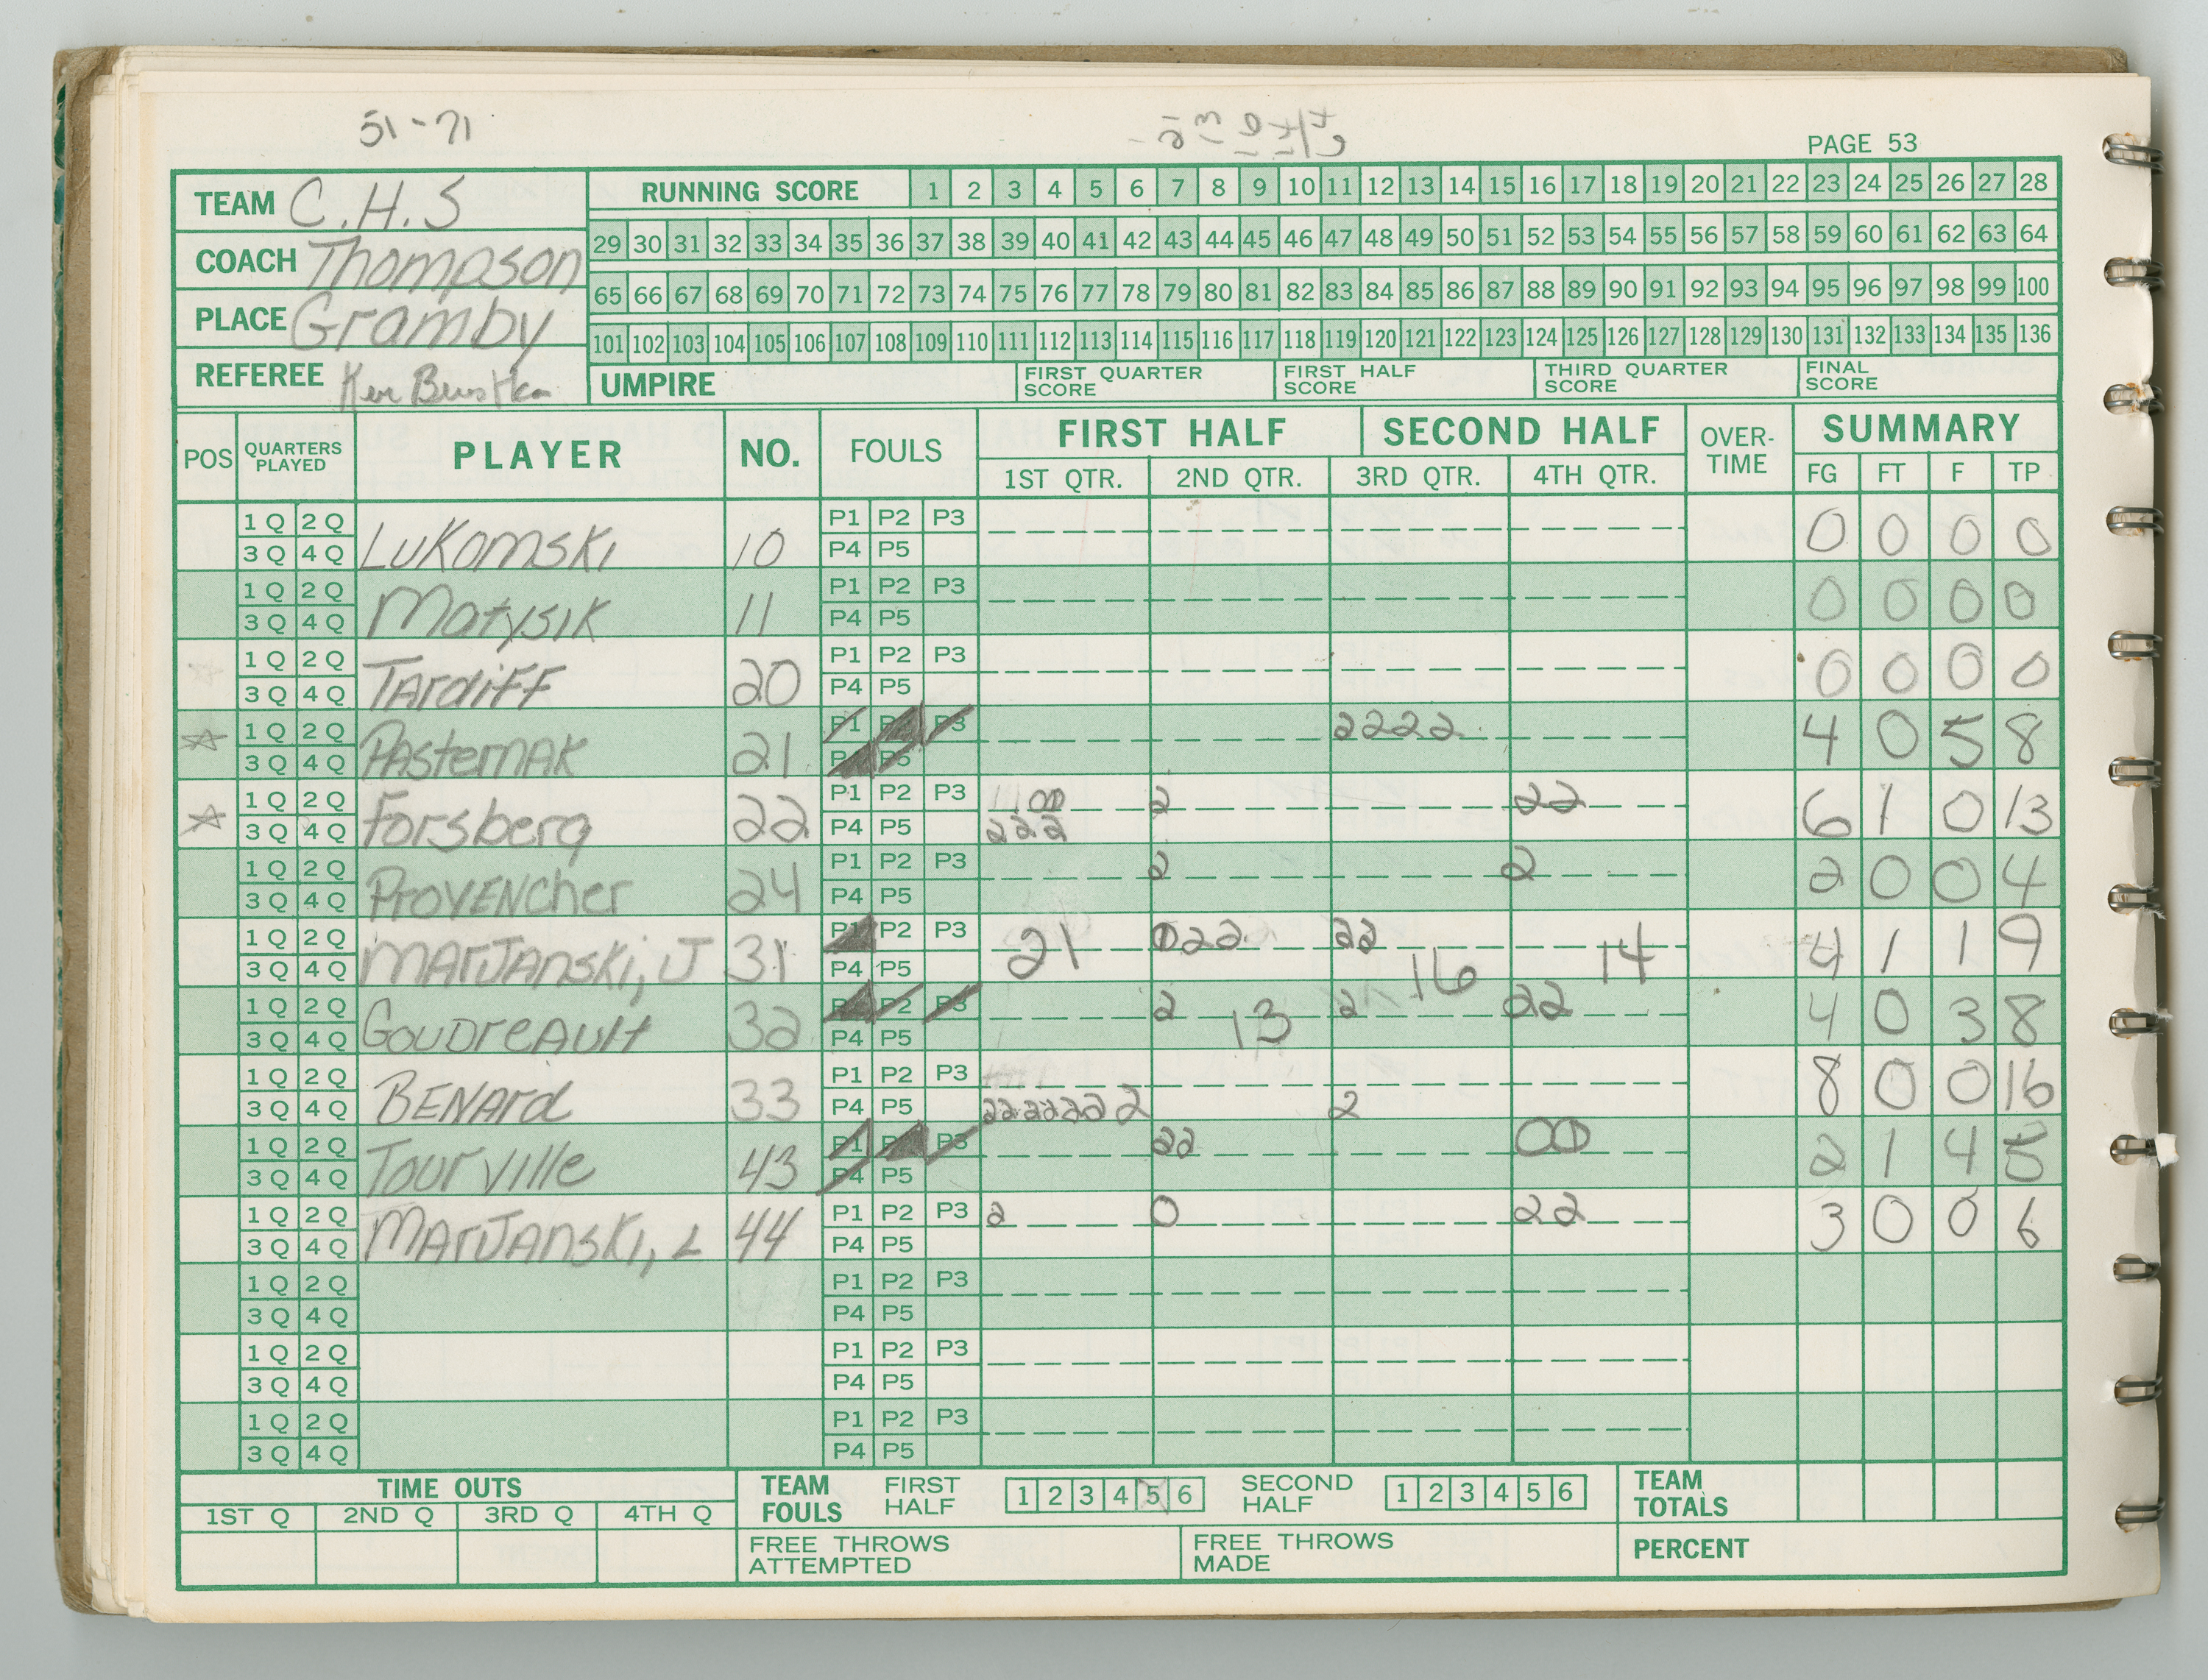 51-71
PAGE 53
TEAM C.H.S
COACH Thompson
PLACE Gramby
REFEREE Ken
RUNNING SCORE 1 2 3 4 5 6 7 8 9 10 11 12 13 14 15 16 17 18 19 20 21 22 23 24 25 26 27 28
29 30 31 32 33 34 35 36 37 38 39 40 41 42 43 44 45 46 47 48 49 50 51 52 53 54 55 56 57 58 59 60 61 62 63 64
65 66 67 68 69 70 71 72 73 74 75 76 77 78 79 80 81 82 83 84 85 86 87 88 89 90 91 92 93 94 95 96 97 98 99 100
101 102 103 104 105 106 107 108 109 110 111 112 113 114 115 116 117 118 119 120 121 122 123 124 125 126 127 128 129 130 131 132 133 134 135 136
UMPIRE FIRST QUARTER SCORE FIRST HALF SCORE THIRD QUARTER SCORE FINAL SCORE
POS QUARTERS PLAYED PLAYER NO. FOULS FIRST HALF SECOND HALF OVER-TIME SUMMARY
1ST QTR. 2ND QTR. 3RD QTR. 4TH QTR. FG FT F TP
1Q 2Q P1 P2 P3
3Q 4Q LUKOMSKI 10 P4 P5 0 0 0 0
1Q 2Q P1 P2 P3
3Q 4Q MATYSIK 11 P4 P5 0 0 0 0
1Q 2Q P1 P2 P3
3Q 4Q TArdiFF 20 P4 P5 0 0 0 0
1Q 2Q P1 P2 P3 2222
3Q 4Q PAsterNAK 21 P4 P5 4 0 5 8
1Q 2Q P1 P2 P3 1100 2 22
3Q 4Q Forsberg 22 P4 P5 222 6 1 0 13
1Q 2Q P1 P2 P3 2 2
3Q 4Q ProVENCher 24 P4 P5 2 0 0 4
1Q 2Q P1 P2 P3 022 22
3Q 4Q MArJANSKi, J 31 P4 P5 21 16 14 4 1 1 9
1Q 2Q P1 P2 P3 2 2 22
3Q 4Q GOUDreAUlt 32 P4 P5 13 4 0 3 8
1Q 2Q P1 P2 P3
3Q 4Q BENArd 33 P4 P5 2222222 2 8 0 0 16
1Q 2Q P1 P2 P3 22 00
3Q 4Q Tourville 43 P4 P5 2 1 4 5
1Q 2Q P1 P2 P3 2 0 22
3Q 4Q MArJANSKi, L 44 P4 P5 3 0 0 6
1Q 2Q P1 P2 P3
3Q 4Q P4 P5
1Q 2Q P1 P2 P3
3Q 4Q P4 P5
1Q 2Q P1 P2 P3
3Q 4Q P4 P5
TIME OUTS
1ST Q 2ND Q 3RD Q 4TH Q
TEAM FOULS FIRST HALF 1 2 3 4 5 6 SECOND HALF 1 2 3 4 5 6
TEAM TOTALS
FREE THROWS ATTEMPTED FREE THROWS MADE PERCENT